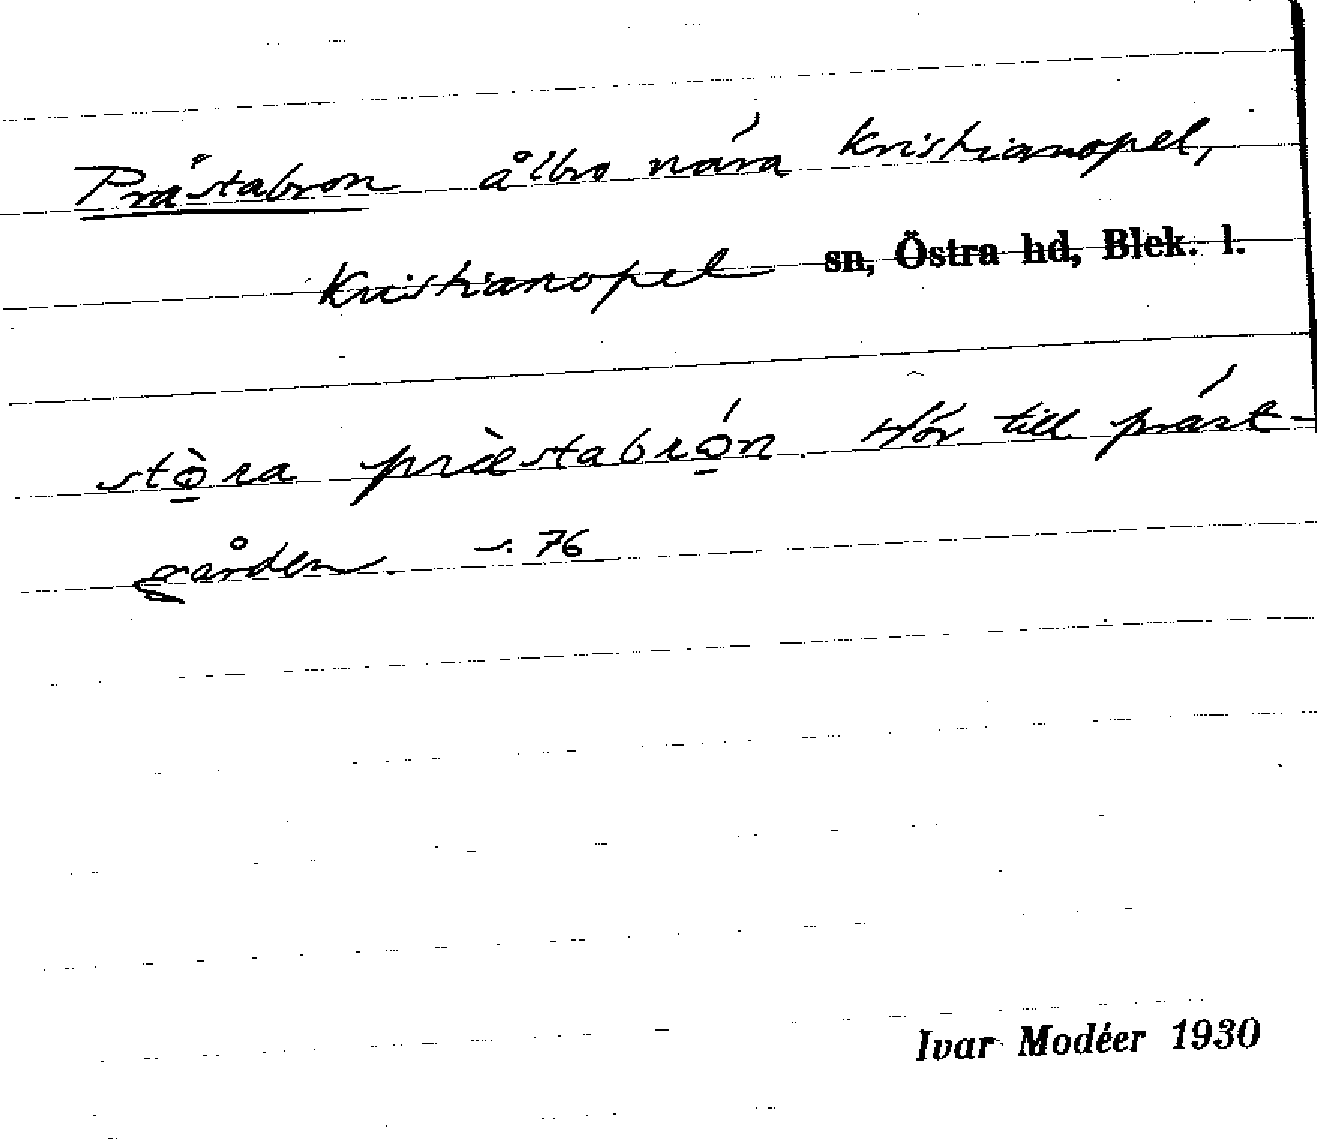 Prästabron ålbro nära Kristianopel,
Kristianopel sn, Östra hd, Blek. l.
stò̱ra præ̀stabró̱n. Hör till präst-
gården. s. 76
Ivar Modéer 1930